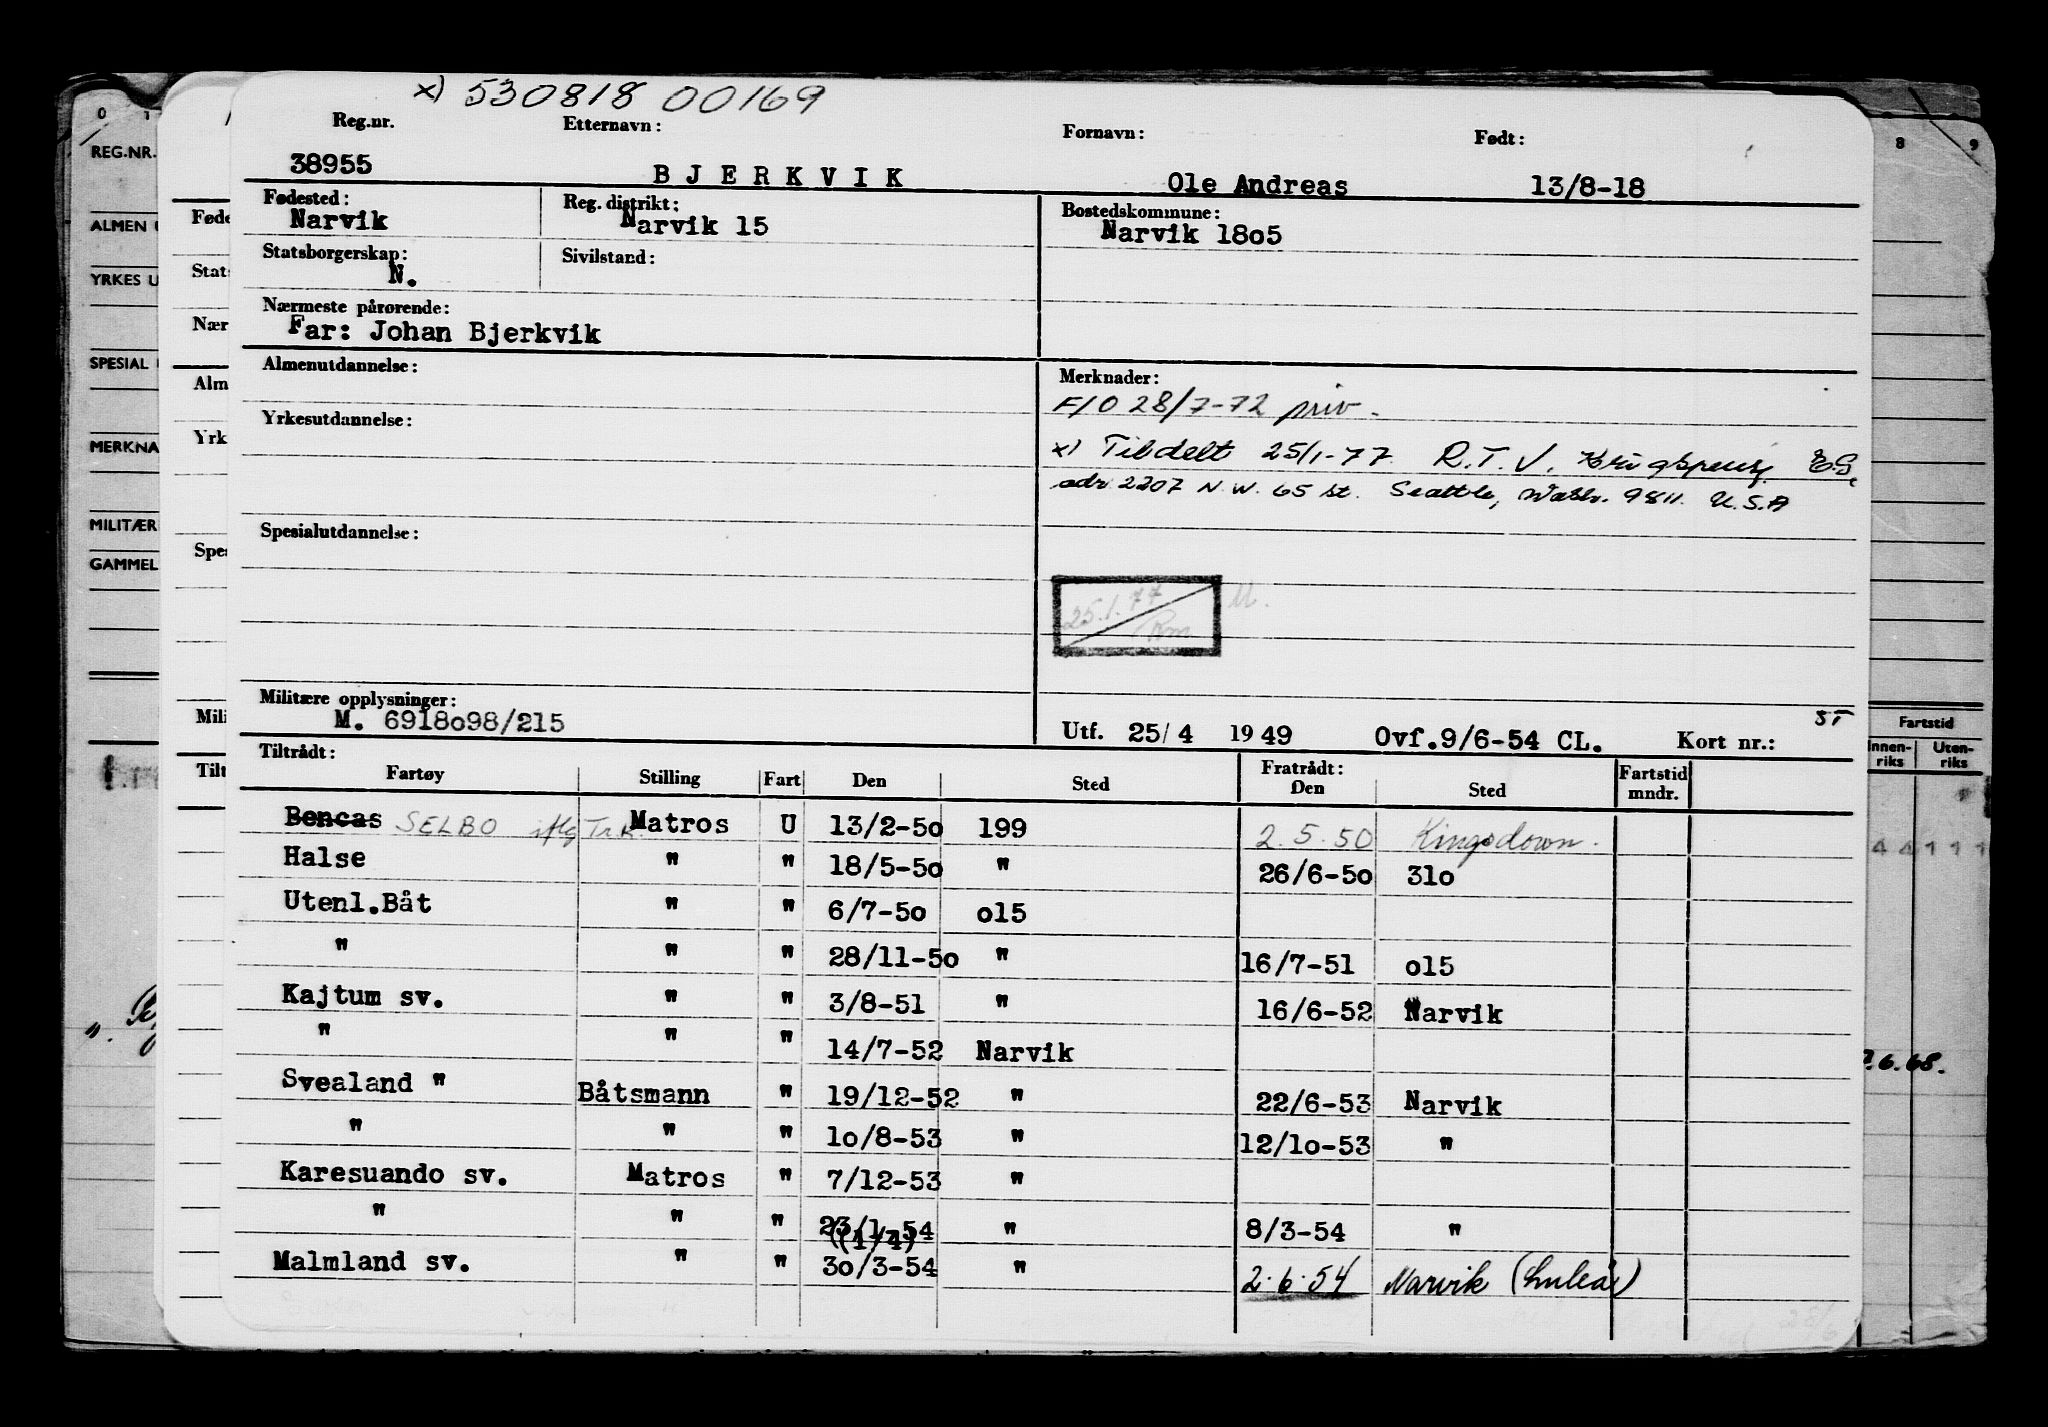 x) 530818 00169
Reg.nr. Etternavn: Fornavn: Født:
38955 BJERKVIK Ole Andreas 13/8-18
Fødested: Reg. distrikt: Bostedskommune:
Narvik Narvik 15 Narvik 18o5
Statsborgerskap: Sivilstand:
N.
Nærmeste pårørende:
Far: Johan Bjerkvik
Almenutdannelse: Merknader:
F/O 28/7-72 priv.
Yrkesutdannelse:
x) Tildelt 25/1-77 R.T.V. Krigspensj. E.S.
adr. 2207 N.W. 65 st. Seattle, Wash. 9811. U.S.A
Spesialutdannelse:
25.1.77
Rm
Militære opplysninger:
M. 6918o98/215
Utf. 25/4 1949 Ovf.9/6-54 CL. Kort nr.: ST
Tiltrådt: Fratrådt:
Fartøy Stilling Fart Den Sted Den Sted Fartstid mndr.
Bencas SELBO iflg Tr.k. Matros U 13/2-5o 199 2.5.50 Kingsdown.
Halse " " 18/5-5o " 26/6-5o 31o
Utenl.Båt " " 6/7-5o o15
" " " 28/11-5o " 16/7-51 o15
Kajtum sv. " " 3/8-51 " 16/6-52 Narvik
" " " 14/7-52 Narvik
Svealand " Båtsmann " 19/12-52 " 22/6-53 Narvik
" " " 1o/8-53 " 12/1o-53 "
Karesuando sv. Matros " 7/12-53 "
" " " 23/1-54 " 8/3-54 "
(1/4)
Malmland sv. " " 3o/3-54 " 2.6.54 Narvik (Luleå)
0 1
REG.NR.
ALMEN U
YRKES U
SPESIAL
MERKNA
MILITÆR
GAMMEL
Føde
Stats
Nær
Alm
Yrk
Spes
Mili
Tilt
8 9
Fartstid
Innen-
riks
Uten-
riks
4 4 1 1 1
.6.68.